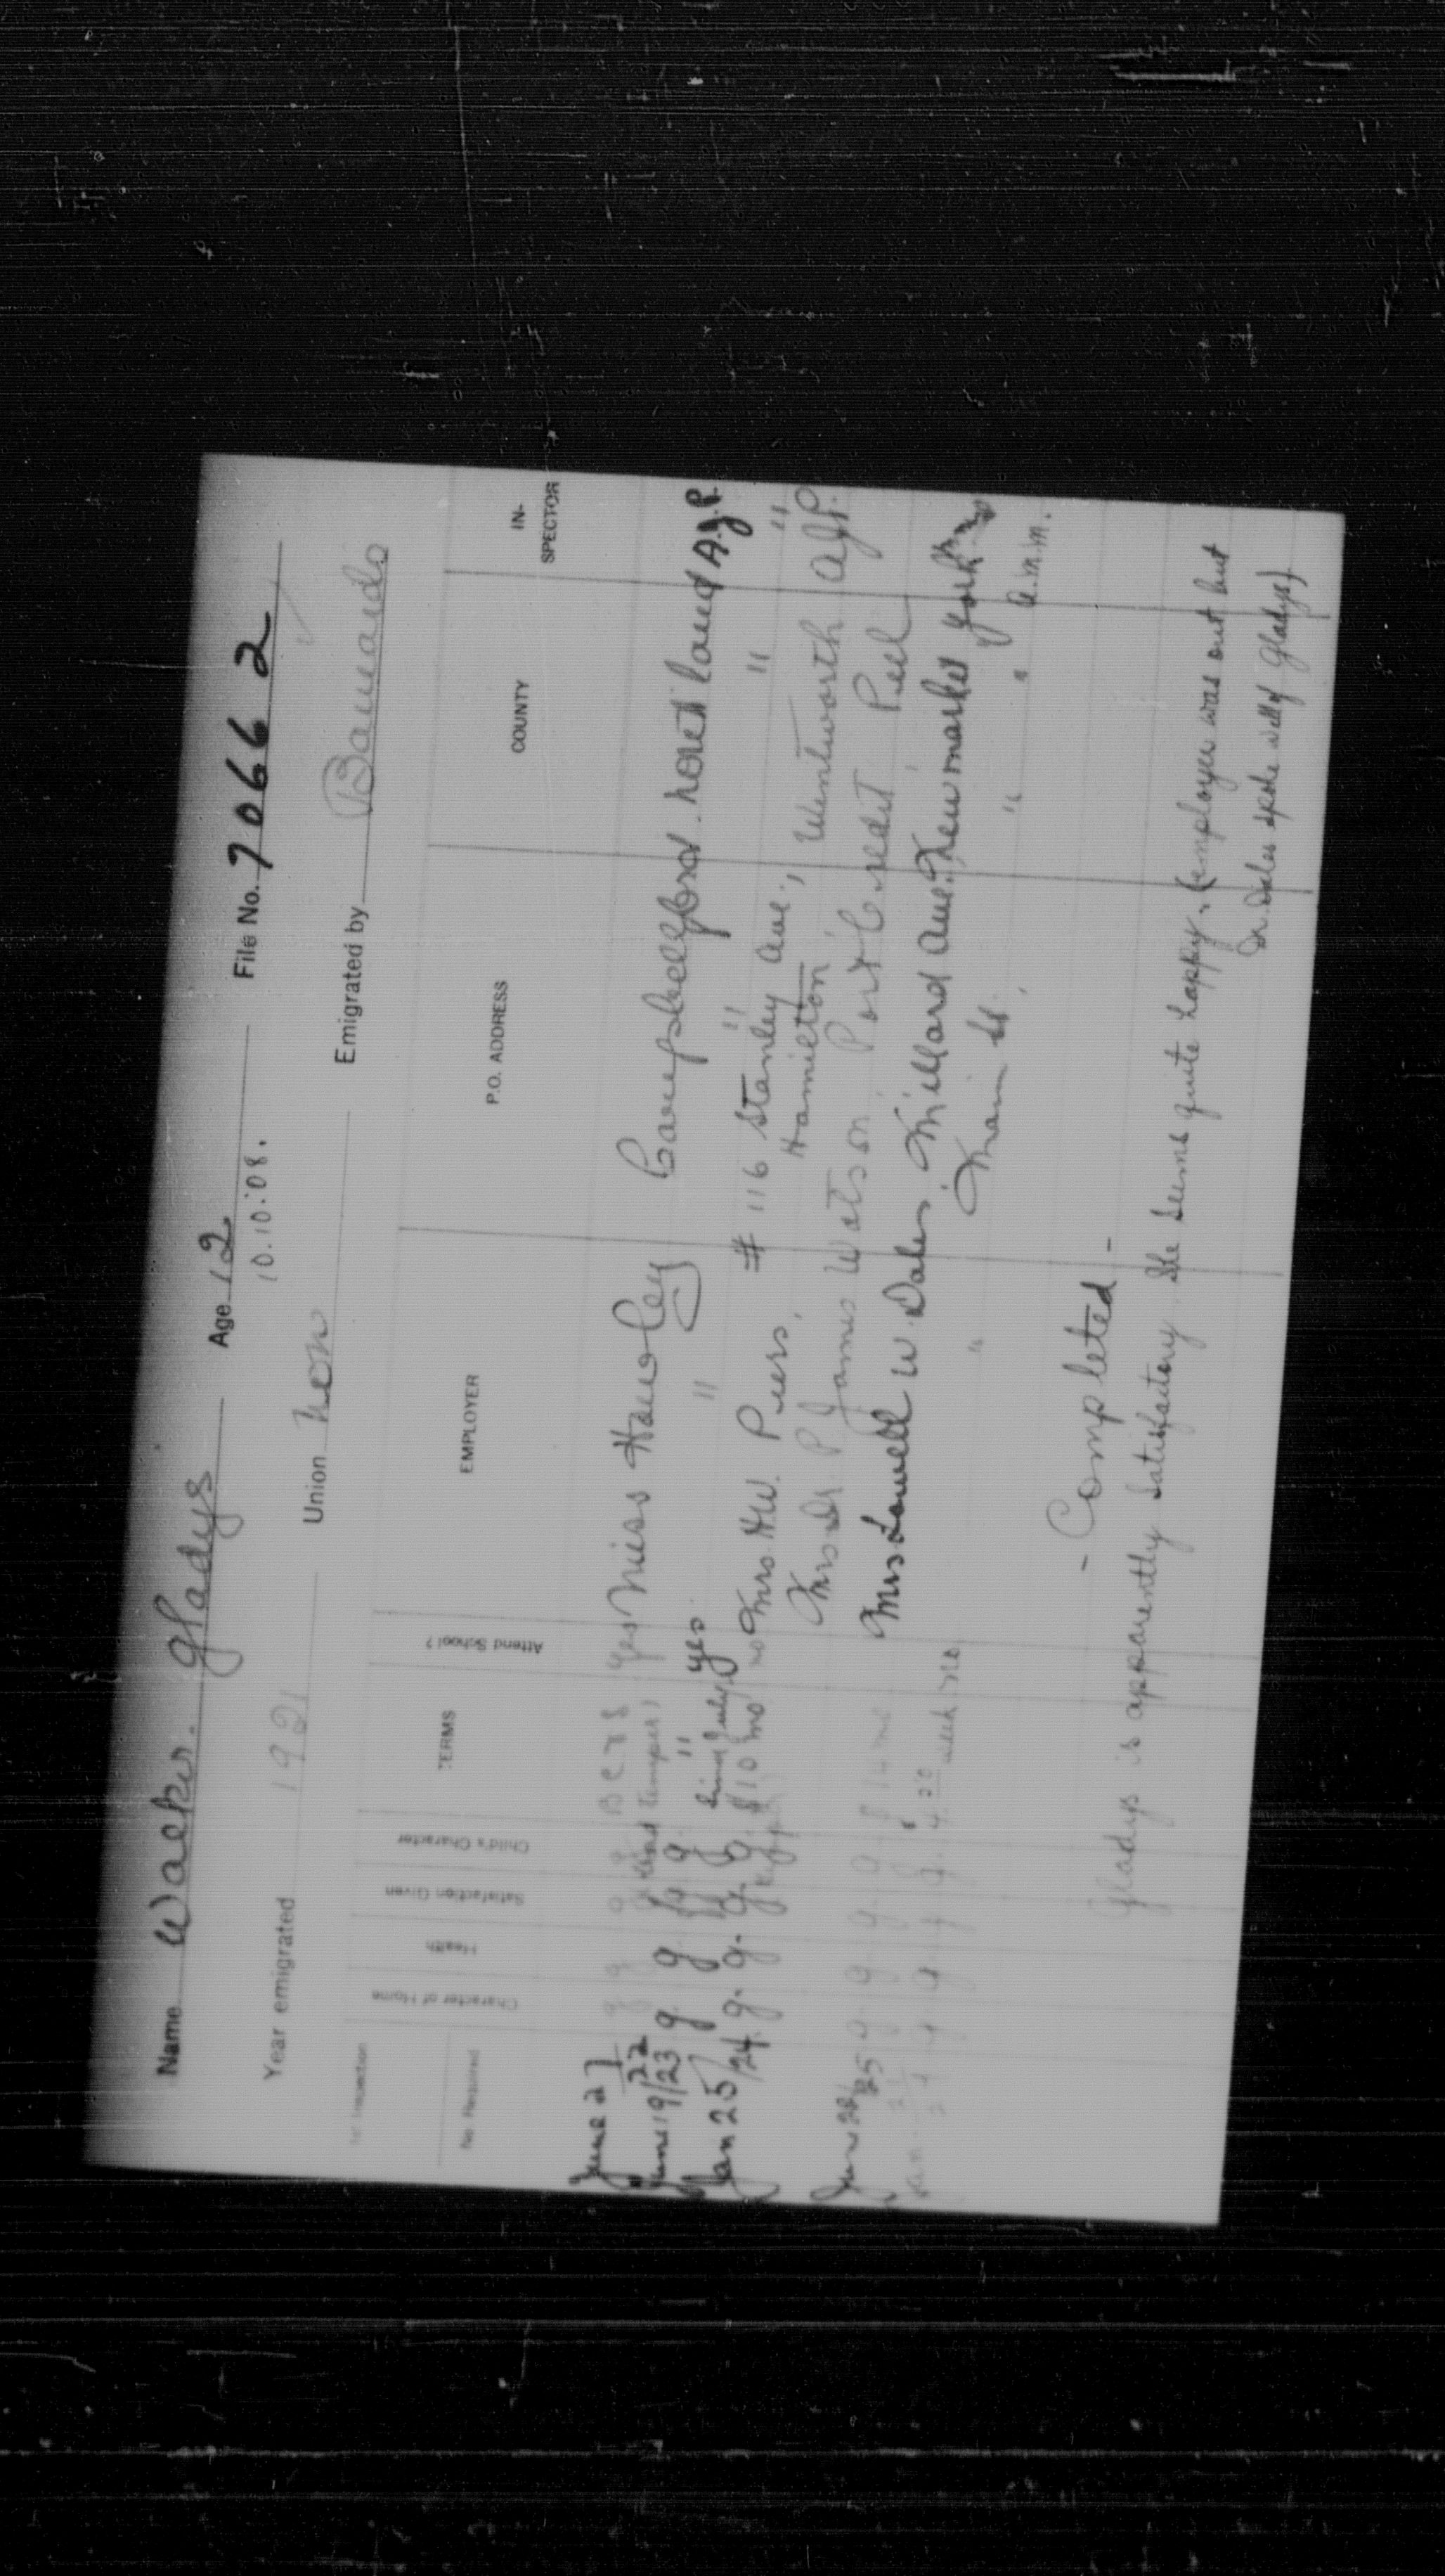 Name Walker. Gladys Age 12 File No. 70662
10.10.08.
Year emigrated 1921 Union Emigrated by Barnardo
No. Required Character of Home Health Satisfaction Given Child's Character TERMS Attend School? EMPLOYER P.O. ADDRESS COUNTY IN-SPECTOR
June 27/22 g g g g B C & S yes Miss Hawley Campbellford. Northland A.J.P.
June 19/23 g g g " yes " " " "
Jan 25/24 g. g. g. g. $10 mo no Mrs. H.W. Piers, # 116 Stanley Ave., Hamilton Wentworth A.J.P.
Mrs Dr. P James Watson Port Credit Peel
June 25 g. g. g. g $14 mo Mrs. Lowell W. Dales, Millard Ave. Newmarket York
Jan. g g g 4.00 week no " Main St. " " A.M.M.
- Completed -
Gladys is apparently satisfactory. She seems quite happy. (employer was out but
Dr. Dales spoke well of Gladys)